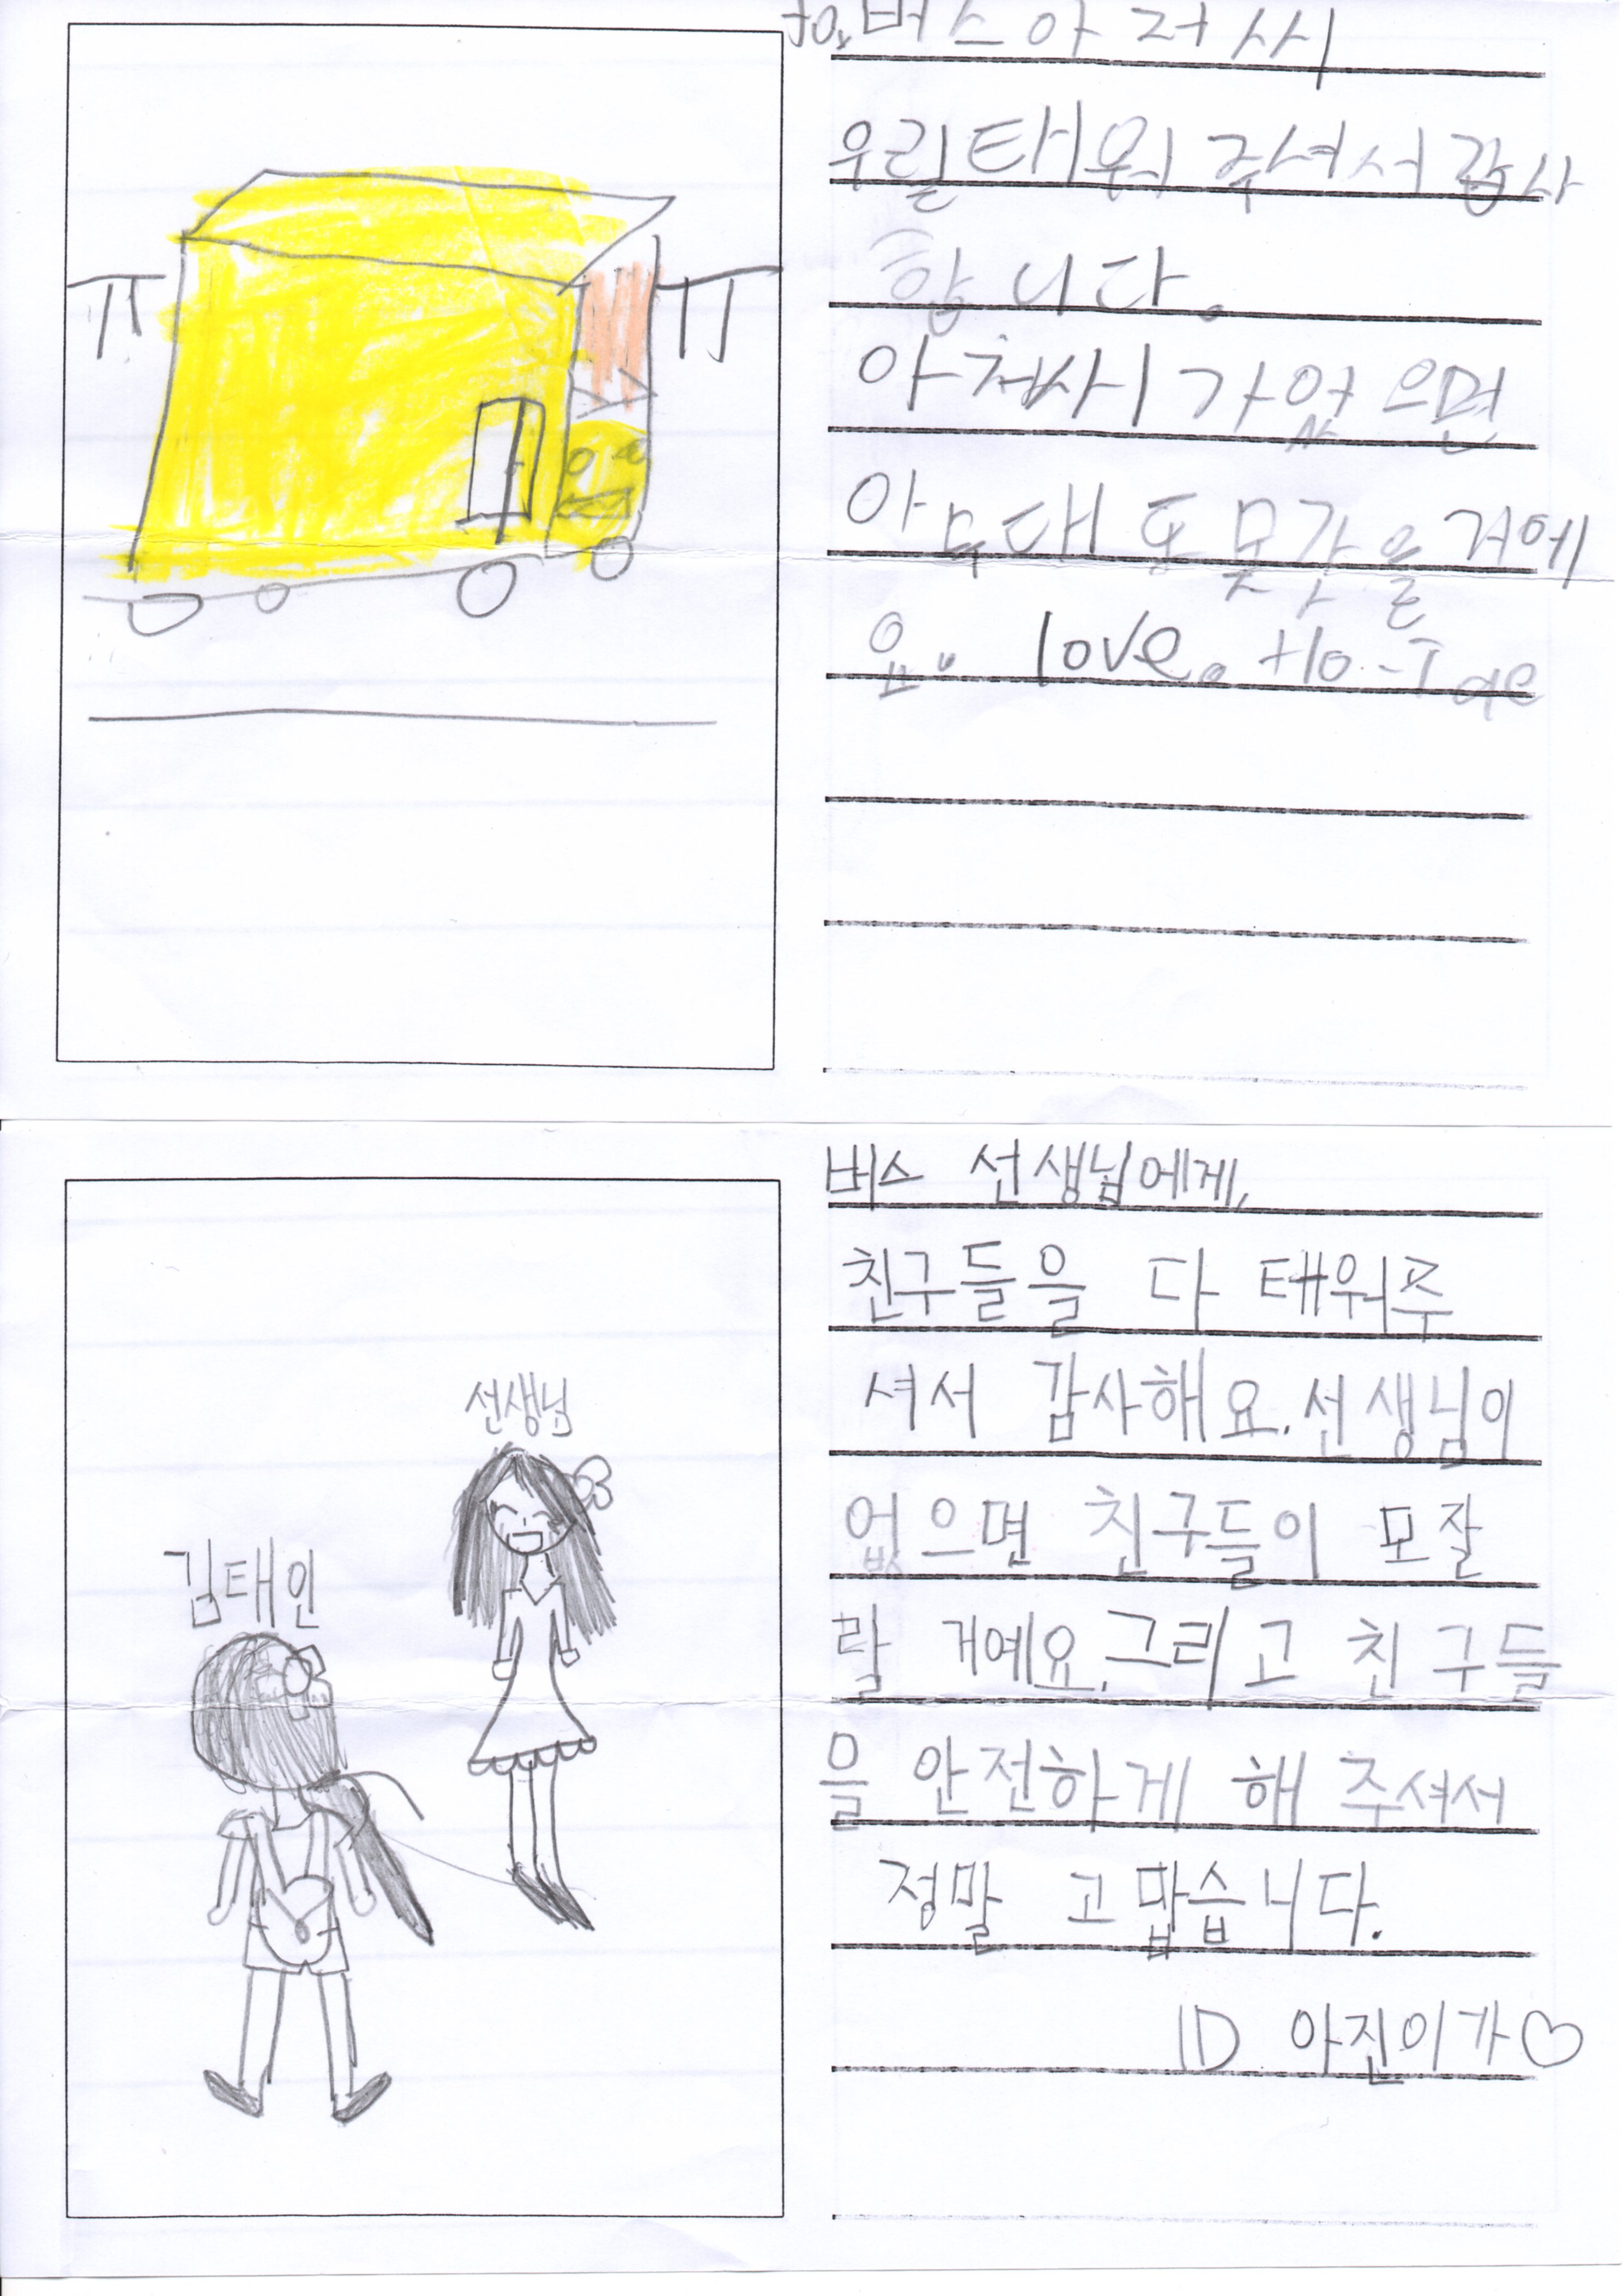 to. 버스아저씨
우릴태워주셔서감사
합니다.
아저씨가없으면
아무대도못갔을거에
요. love. Ho-Tae
버스 선생님에게,
친구들을 다 태워주
셔서 감사해요. 선생님이
없으면 친구들이 모잘
랄 거예요. 그리고 친구들
을 안전하게 해 주셔서
정말 고맙습니다.
1D 아진이가♡
선생님
김태인